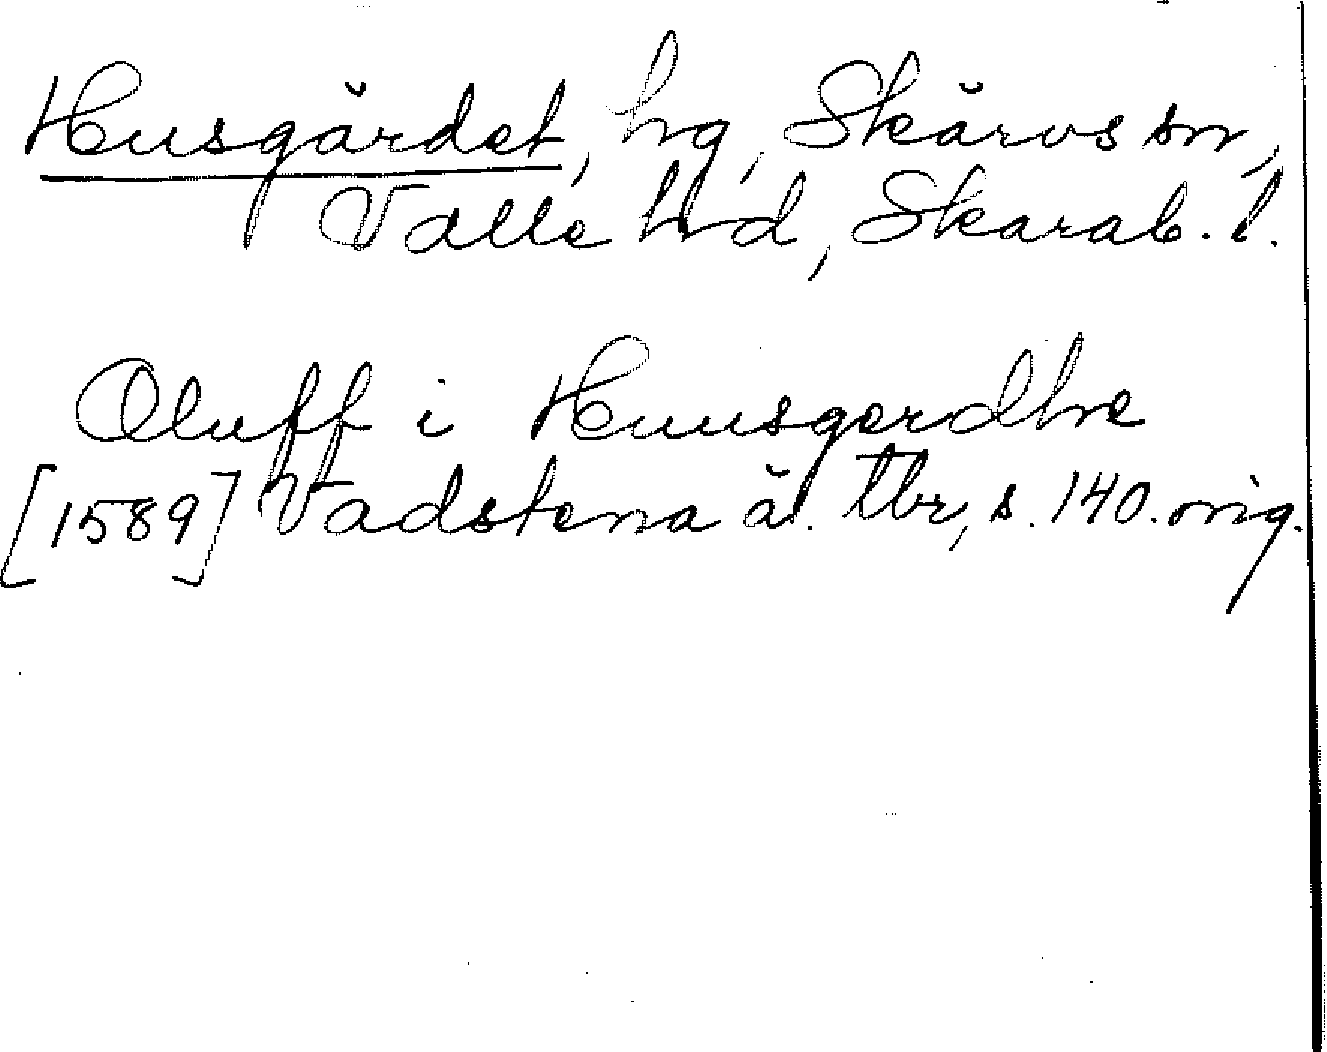 Husgärdet, hg, Skärvs sn,
Valle hd, Skarab. l.
Oluff i Huusgerdhe
[1589] Vadstena äl. tbr, s. 140. orig.